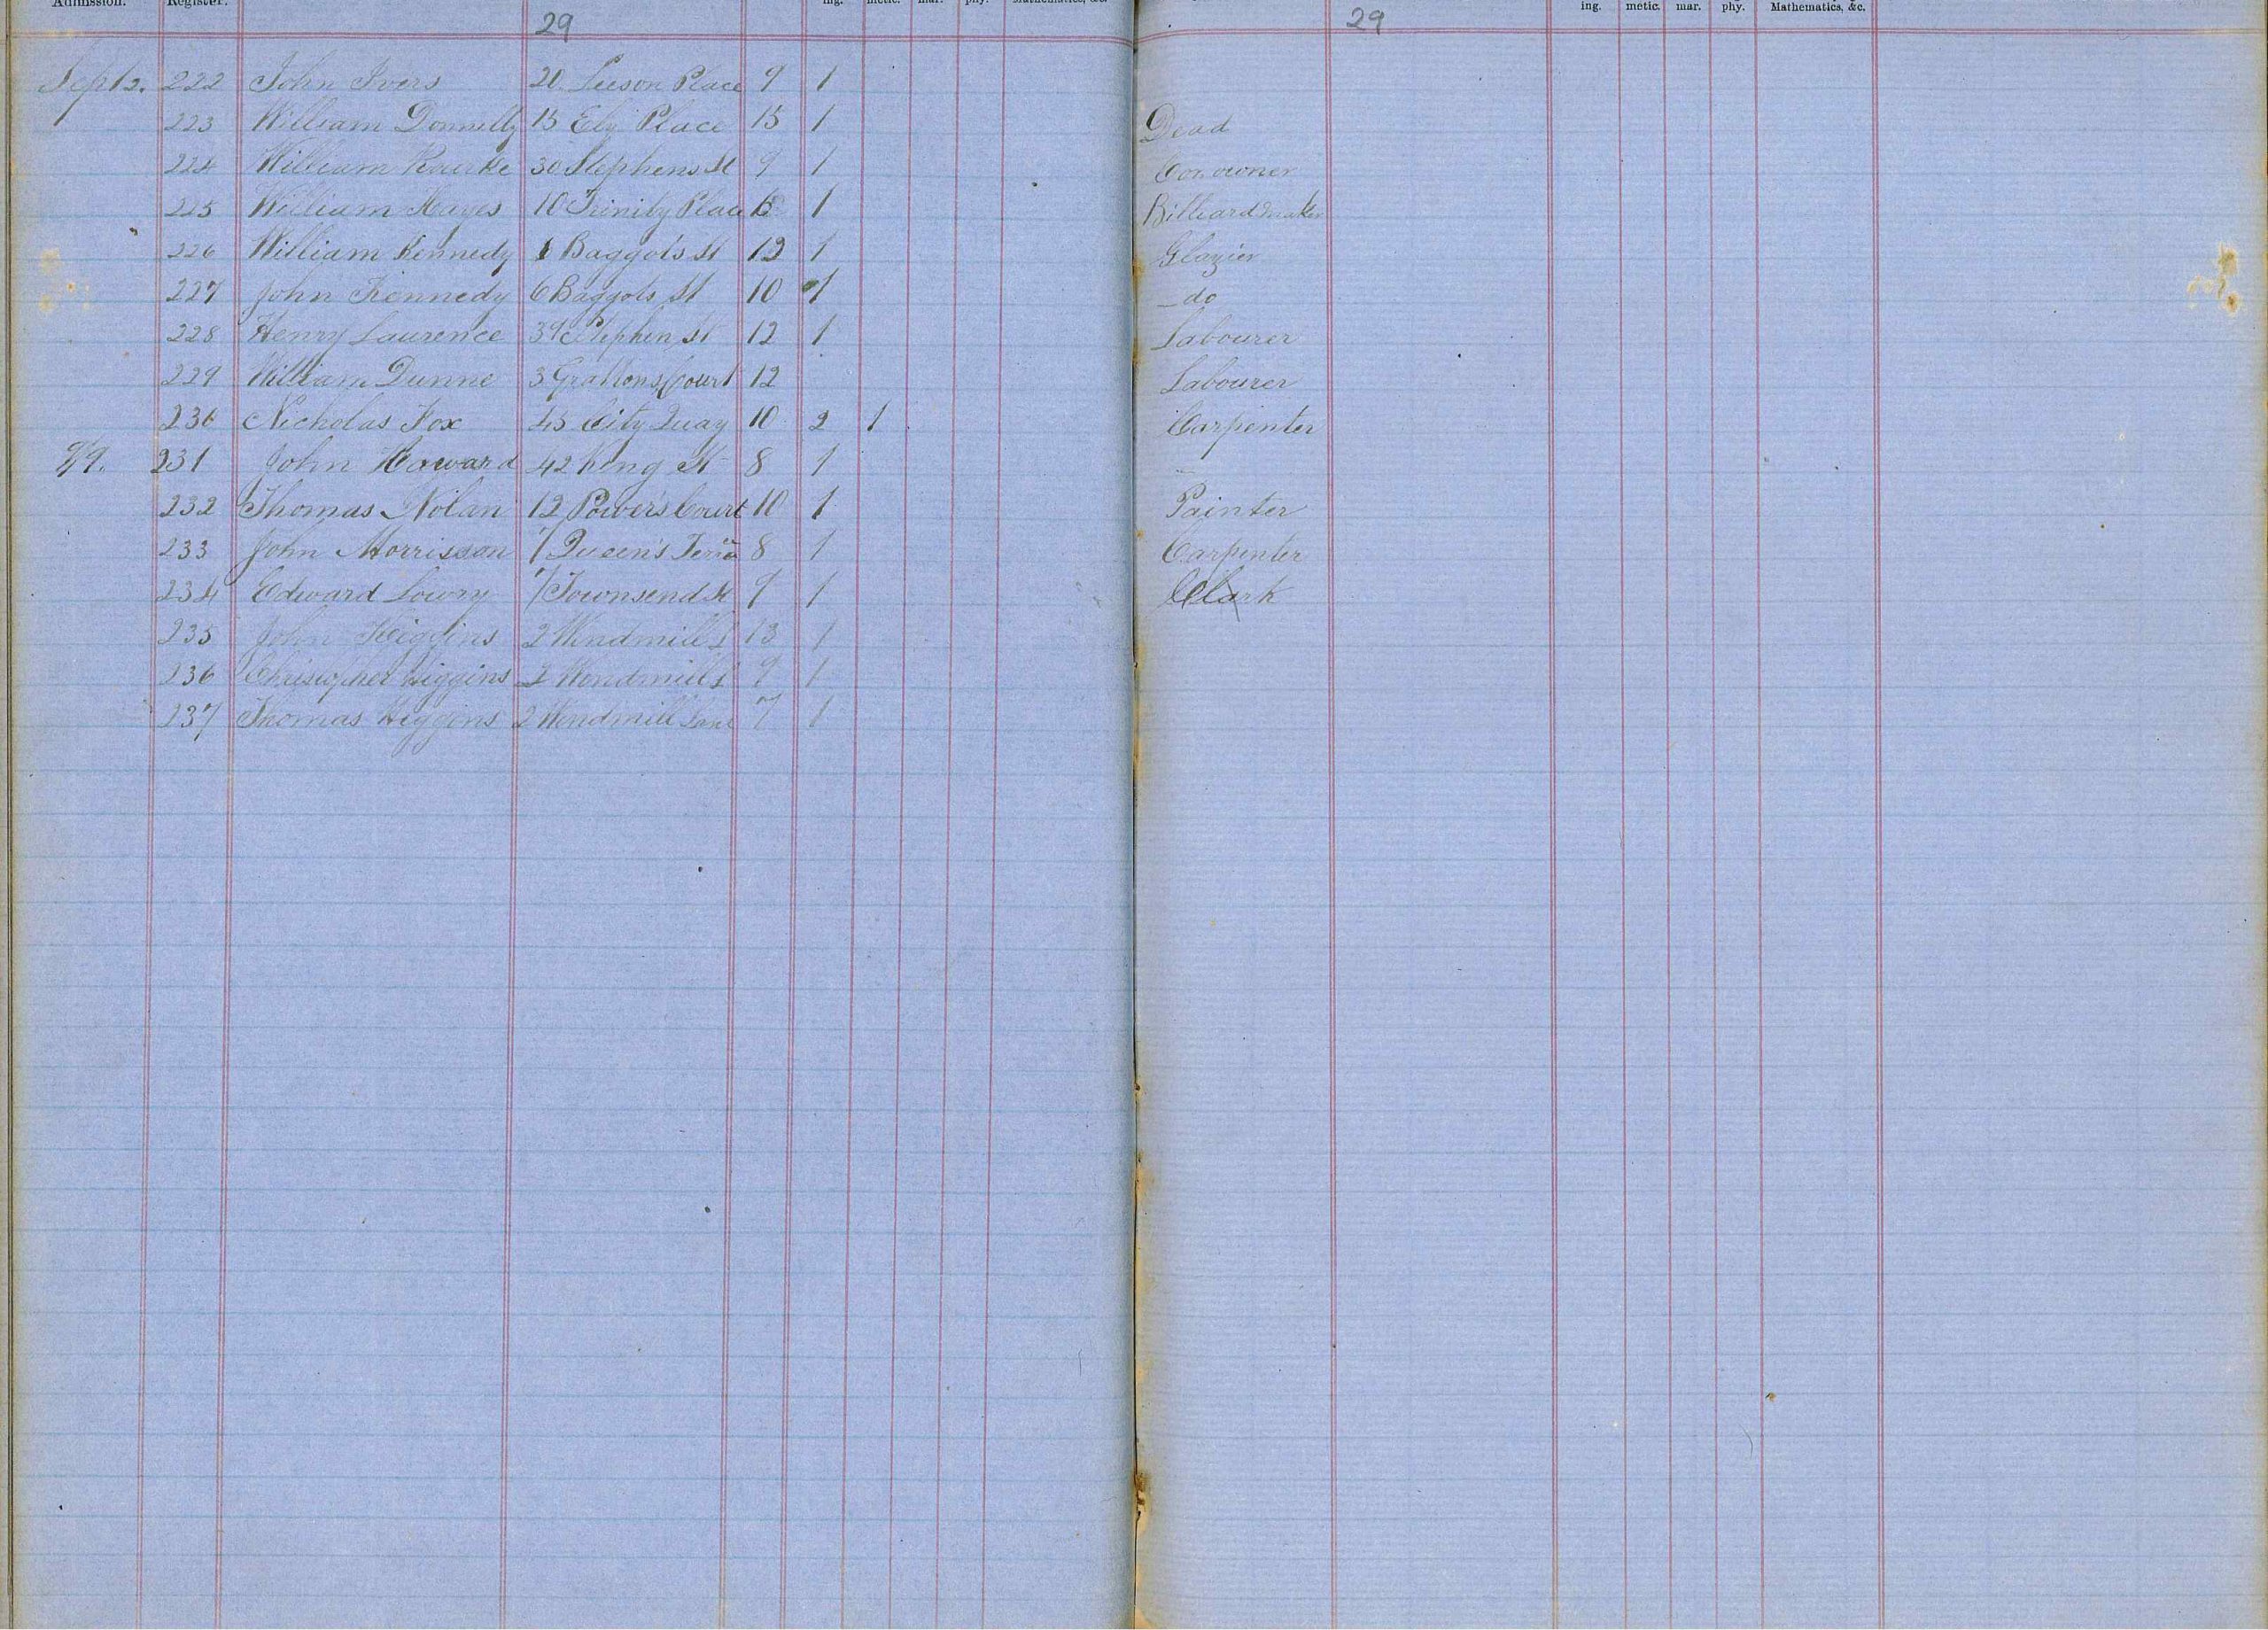 Admission. Register. ing. metic. mar. phy. Mathematics, &c. ing. metic. mar. phy. Mathematics, &c.
29 29
Sept 2. 222 John Ivers 20 Leeson Place 9 1
223 William Donnelly 15 Ely Place 15 1 Dead
224 William Rourke 30 Stephens St 9 1 Car owner
225 William Hayes 10 Trinity Place 1 Billiard maker
226 William Kennedy Baggots St 12 1 Glazier
227 John Kennedy 6 Baggots St 10 1 do
228 Henry Laurence 39 Stephen St 12 1 Labourer
229 William Dunne 3 Grattons Court 12 Labourer
230 Nicholas Fox 45 City Quay 10 2 1 Carpenter
231 John Haward 42 King St 8 1
232 Thomas Nolan 12 Power's Court 10 1 Painter
233 John Morrisson 1 Queen's Terra 8 1 Carpenter
234 Edward Lowry Townsend St 9 1 Clark
235 John Higgins 2 Windmill L 13 1
236 Christopher Higgins 2 Windmill L 9 1
237 Thomas Higgins 2 Windmill Lane 7 1